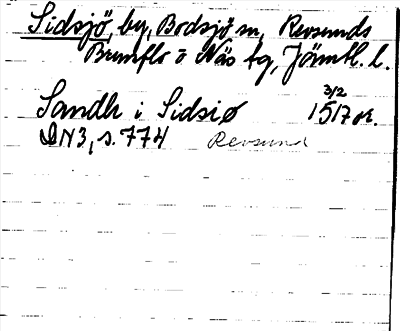 Sidsjö, by, Bodsjö sn, Revsunds
Brunflo o Näs tg, Jämtl. l.
Sandh i Sidsiø 3/2 1517 or.
DN 3, s. 774 Revsund